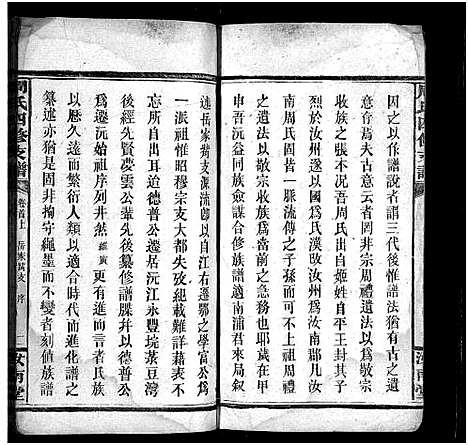 因之欧蘇以後說者謂三代後惟譜法猶有古之遺
意存焉夫古意云者罔非宗周禮遺法以爲敬宗
收族之意不忘吾周氏出自姬姓自平王封子
烈於汝州以國爲氏漢改汝州爲汝南郡凡汝
南周氏固皆一脈流傳之子孫於二千年後用周
之遺法以敬宗收族爲當前之急務也耶歲在甲
申吾沅益湘各族僉謀合修族譜適南浦君來自
述岳家䓪支源流卽以自江右遷鄂之學富公爲
一派祖惟昭穆宗支大都失攷紀載難詳藉表不
忘所自出迨德普公遷居沅江永豐垸蔡荳灣
後經先賢夢雲公輩先後纂修譜牒幷以德普公
爲遷沅始祖序列井然 更有進而言者
以歷久遠而繁衍人類以適合時代而進化譜之
纂述亦猶是固非拘守繩墨而不變者刻値族譜
周氏四修支譜
卷首上
岳家䓪支
汝南堂
周氏四修支譜
汝南堂